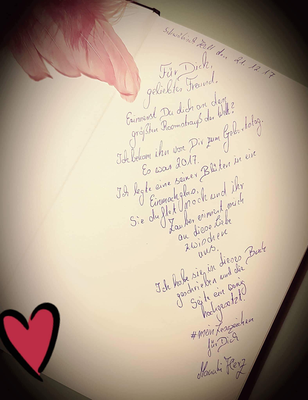 Schwäbisch Hall den 21.12.17
Für Dich,
geliebter Freund.
Erinnerst Du dich an den
größten Rosenstrauß der Welt?
Ich bekam ihn von Dir zum Geburtstag.
Es war 2017.
Ich legte eine seiner Blüten in ein
Einmachglas.
Sie duftet noch und ihr
Zauber erinnert mich
an diese Liebe
zwischen
uns.
Ich habe sie in dieses Buch
geschrieben und die
Seite ein wenig
hochgesetzt
#meinLesezeichen
für Dich
Herz